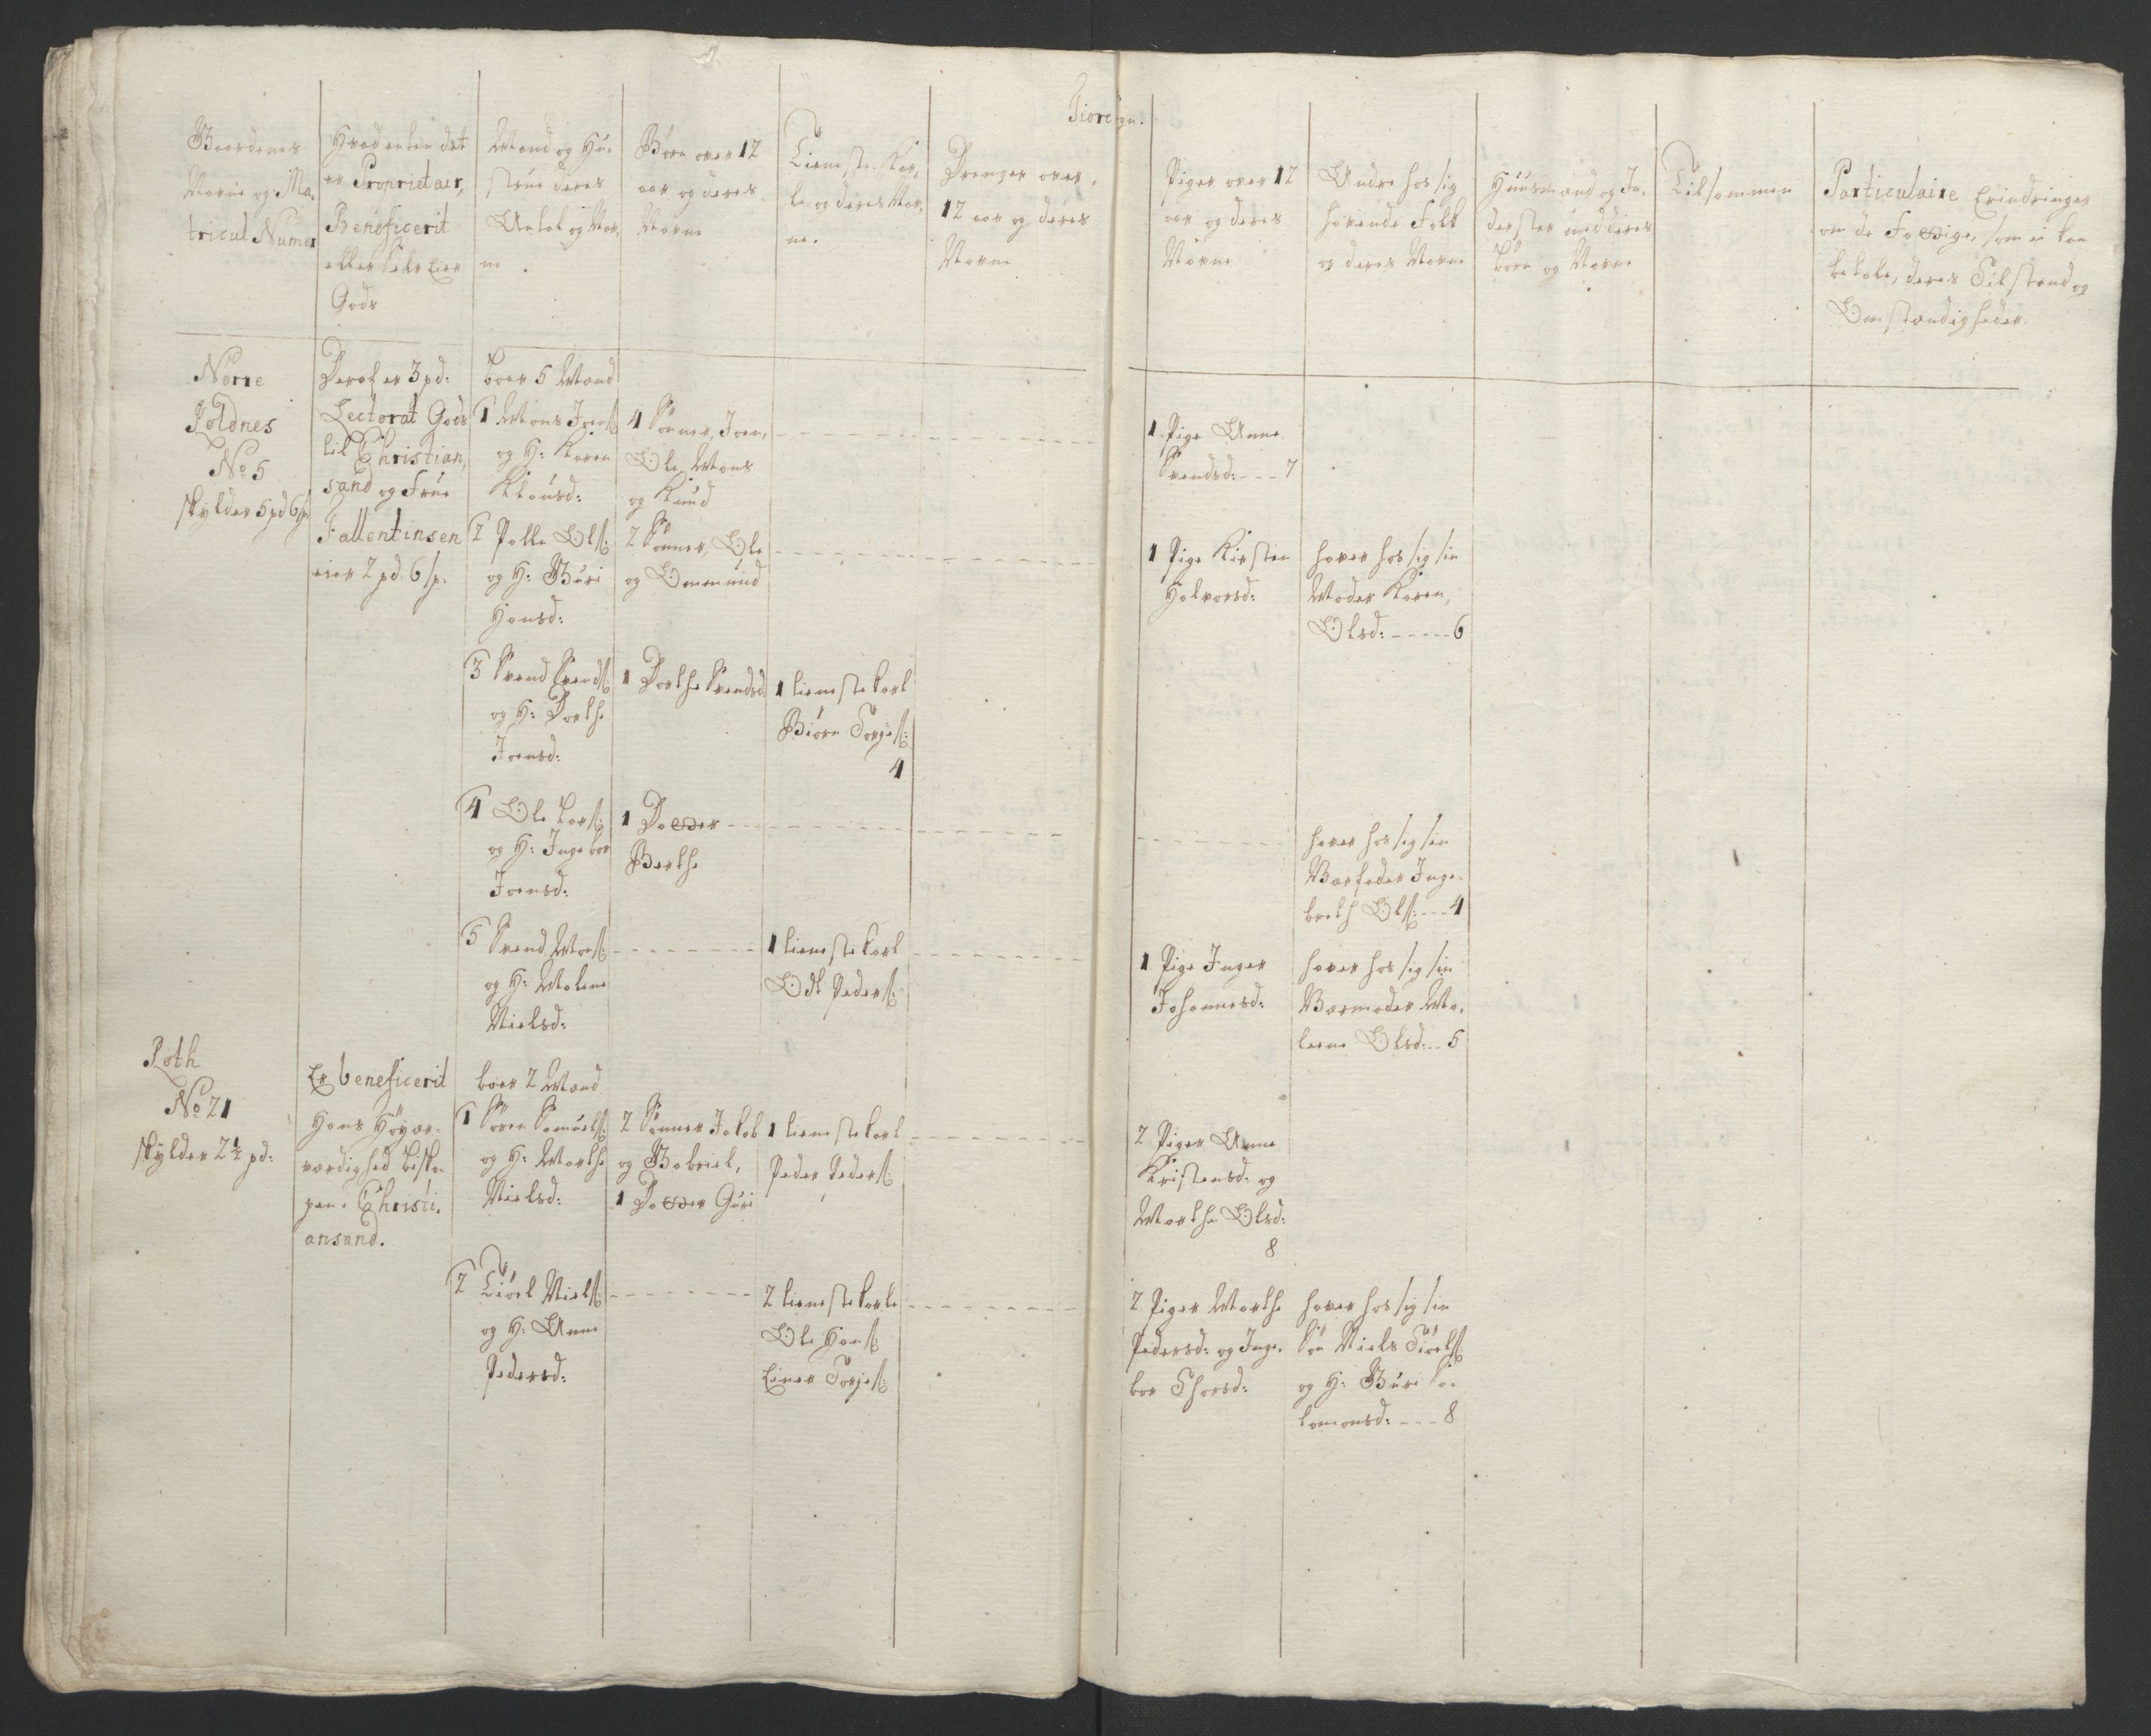 Gaardenes
Navne og Ma-
tricul Numer
Hvad enten det
er Proprietair,
Beneficerit
eller Selv Eier
Gods
Mand og Hu-
strue deres
Antal og Nav-
ne
Børn over 12
aar og deres
Navne
Tieneste Kar-
le og deres Nav-
ne.
Drenger over
12 aar og deres
Navne
Piger over 12
aar og deres
Navne
Andre hos sig
havende Folk
og deres Navne
Huusmænd og In-
derster med deres
Børn og Navne
Tilsammen
Particulaire Erindringer
om de Fattige, som ei kan
betale, deres Tilstand og
Omstændigheder.
Nørre
Joldnes
No 5
skylder 5 pd 6 sp
Deraf er 3 pd:
Lectorat Gods
til Christian,
sand og Frue
Fallentinsen
eier 2 pd. 6 sp.
boer 5 Mænd
1 Mons Joens:
og H: Karen
Klausd:
4 Sønner, Joen,
Ole, Mons
og Knud
1 Pige Anne
Svendsd: - - - 7
2 Palle Ols:
og H: Guri
Hansd:
2 Sønner, Ole
og Ommund
1 Pige Kirsten
Halvorsd:
haver hos sig sin
Moder Karen
Olsd: - - - - - 6
3 Svend Svends:
og H: Dorthe
Joensd:
1 Dorthe Svendsd
1 tieneste karl
Biørn Torjes:
4
4 Ole Lars:
og H: Ingebor
Joensd:
1 Datter - - -
Berthe
haver hos sig sin
Værfader Inge-
breth Ols: - - - 4
5 Svend Mons:
og H: Malene
Nielsd:
1 tieneste karl
Odt Peders:
1 Pige Inger
Johannesd:
haver hos sig sin
Værmoder Ma-
leene Olsd: - - 5
Joth
No 21
skylder 2 1/2 pd:
Er beneficerit
Hans Høyær-
værdighed bisko-
pen i Christi-
ansand.
boer 2 Mænd
1 Søren Samuels:
og H: Marthe
Nielsd:
2 Sønner Jakob
og Gabriel,
1 Datter Guri
1 tieneste karl
Peder Peders:
2 Piger Anne
Kristensd: og
Marthe Olsd:
8
2 Tiøel Niels:
og H: Anne
Pedersd:
2 tieneste karle
Ole Hans:
Einer Torjes:
2 Piger Marthe
Pedersd: og Inge-
bor Thorsd:
haver hos sig sin
Søn Niels Tiøels:
og H: Guri Sa-
lamonsd: - - - 8